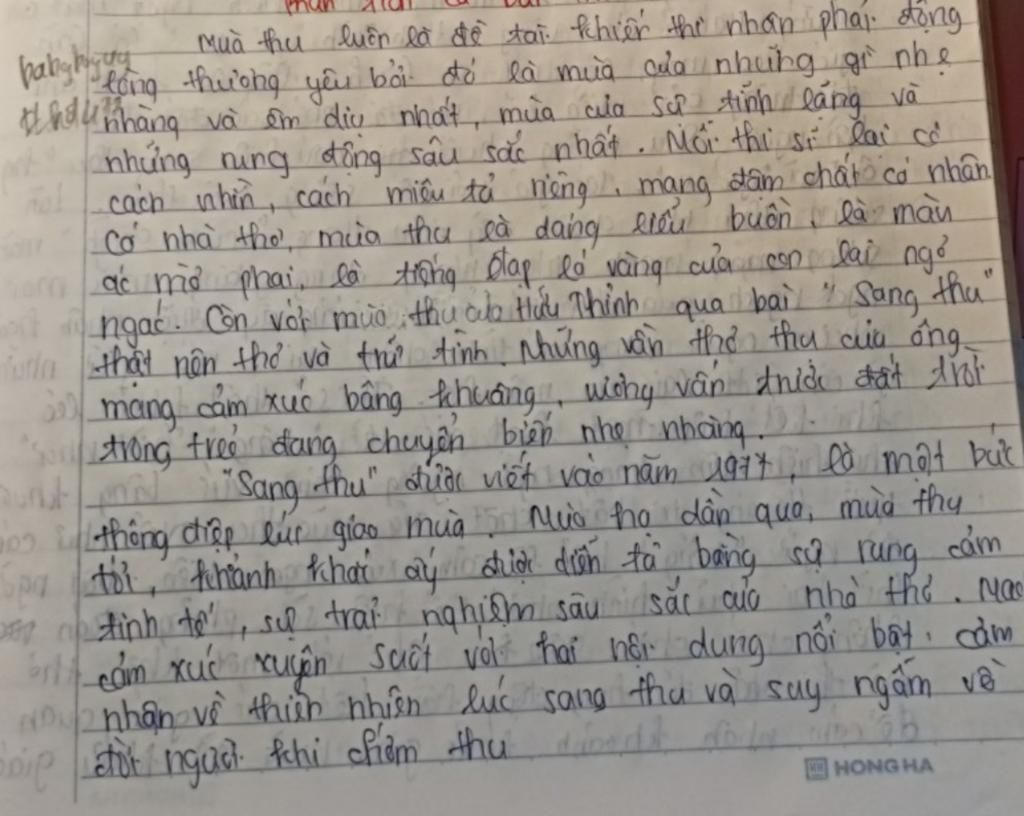 Mùa thu luôn là đề tài khiến thi nhân phải động
lòng thương yêu bởi đó là mùa của những gì nhẹ
nhàng và êm dịu nhất, mùa của sự tĩnh lặng và
những rung động sâu sắc nhất. Mỗi thi sĩ lại có
cách nhìn, cách miêu tả riêng, mang đậm chất cá nhân
Có nhà thơ, mùa thu là dáng liễu buồn, là màu
áo mờ phai, là tiếng đạp lá vàng của con lai ngơ
ngác. Còn với mùa thu của Hữu Thỉnh qua bài "Sang thu"
thật nên thơ và trữ tình. Những vần thơ thu của ông
mang cảm xúc bâng khuâng, vương vấn trước đất trời
trong trẻo đang chuyển biến nhẹ nhàng.
"Sang thu" được viết vào năm 1977, là một bức
thông điệp lúc giao mùa. Mùa hạ dần qua, mùa thu
tới, khoảnh khắc ấy được diễn tả bằng sự rung cảm
tinh tế, sự trải nghiệm sâu sắc của nhà thơ. Mạch
cảm xúc xuyên suốt với hai nội dung nổi bật: cảm
nhận về thiên nhiên lúc sang thu và suy ngẫm về
đời người khi chớm thu
HONG HA